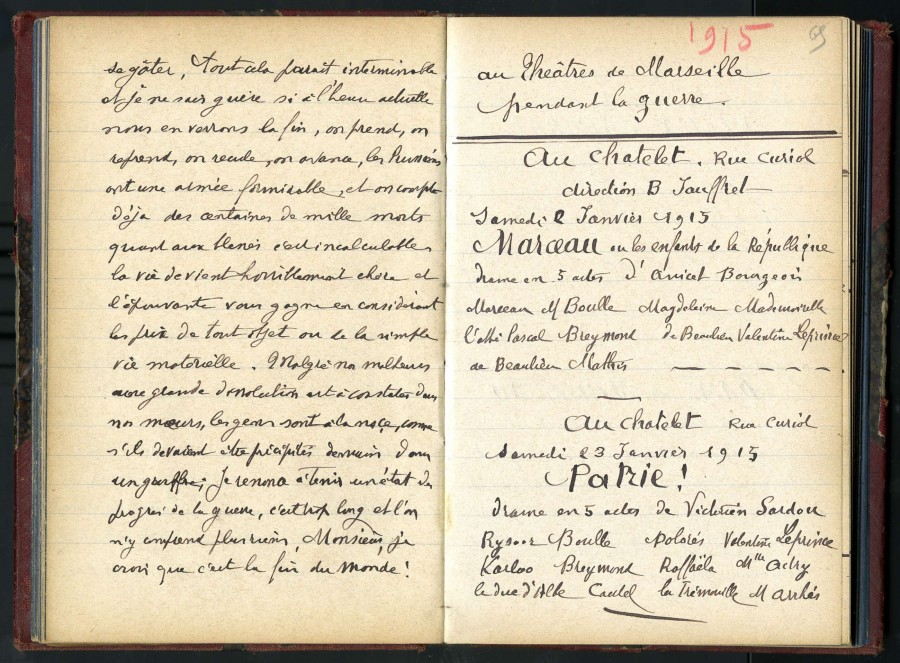 se gâter, Tout cela parait interminable
et je ne sais guère si à l'heure actuelle
nous en verrons la fin, on prend, on
reprend, on recule, on avance, les Russies
ont une armée formidable, et on compte
déja des centaines de mille morts
quant aux blessés c'est incalculable,
la vie devient horriblement chère et
l'épouvante vous gagne en considérant
les prix de tout objet ou de la simple
vie materielle. Malgré nos malheurs
une grande dissolution est à constater dans
nos mœurs, les gens sont à la noce, comme
s'ils devaient être précipités demain dans
un gouffre; Je renonce à tenir un état du
progrès de la guerre, c'est trop long et l'on
n'y comprend plus rien, Monsieur, je
crois que c'est la fin du monde!
1915
69
au Théâtres de Marseille
pendant la guerre.
Au Chatelet. Rue Curiol
direction B Jauffret
Samedi 2 Janvier 1915
Marceau ou les enfants de la République
drame en 5 actes d'Anicet Bourgeois
Marceau M Boulle Magdeleine Mademoiselle
l'abbé Pascal Breymond de Beaulieu Valentine Leprince
de Beaulieu Mathis
Au Chatelet Rue Curiol
Samedi 23 Janvier 1915
Patrie!
drame en 5 actes de Victorien Sardou
Rysoor Boulle Dolorès Valentine Leprince
Karloo Breymond Raffaëla Mlle
le duc d'Albe la Trémouille M